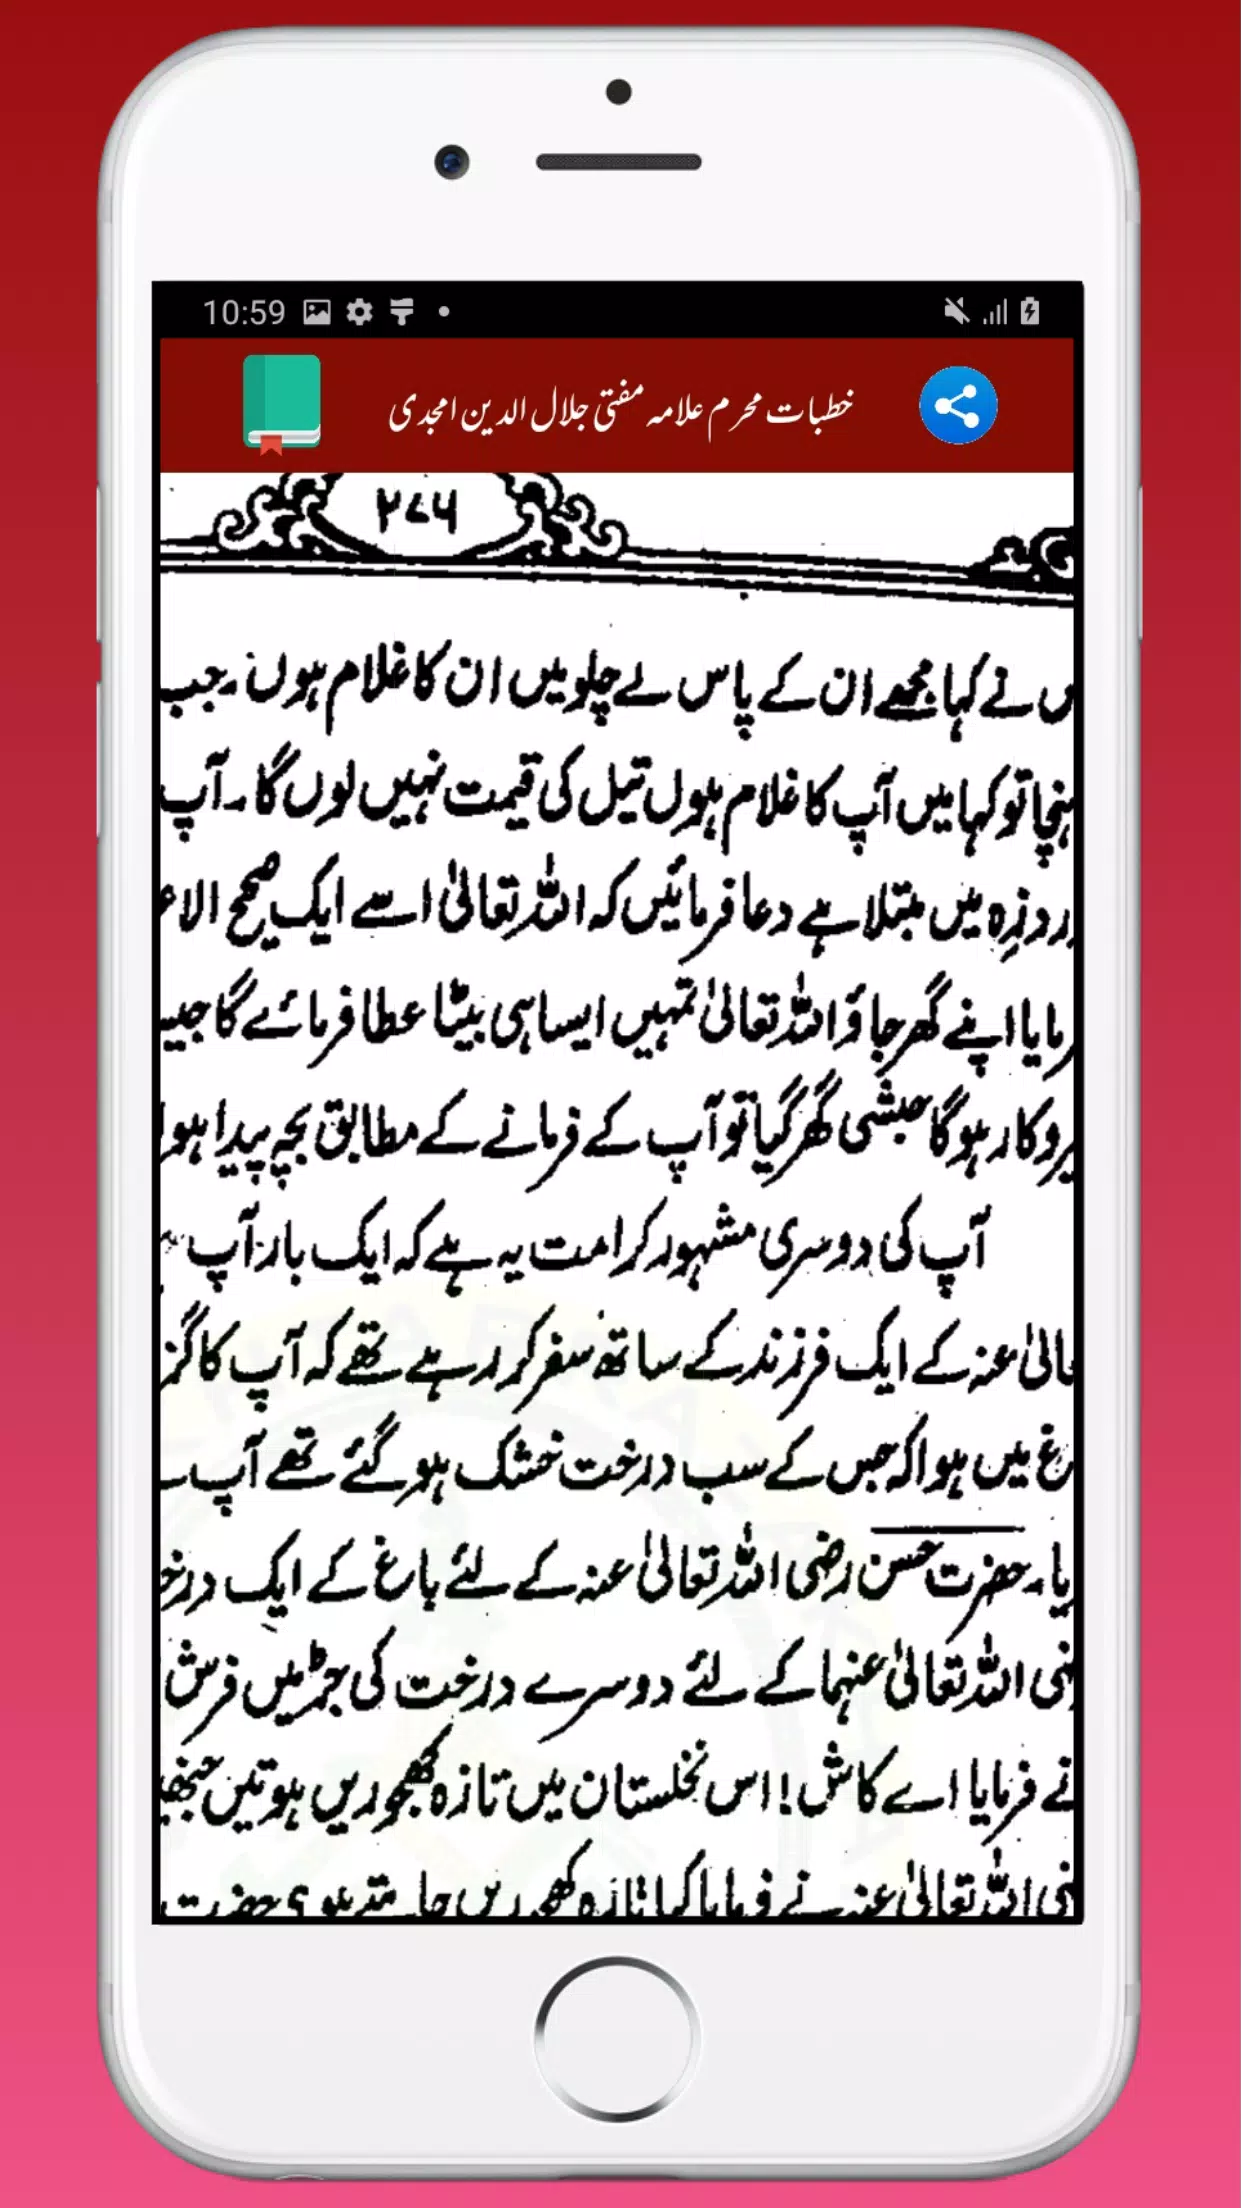 10:59
خطبات محرم علامہ مفتی جلال الدین امجدی
۲۷۶
س نے کہا مجھے ان کے پاس لے چلو میں ان کا غلام ہوں۔ جب
ہنچا تو کہا میں آپ کا غلام ہوں تیل کی قیمت نہیں لوں گا۔ آپ
درد زہ میں مبتلا ہے دعا فرمائیں کہ اللہ تعالیٰ اسے ایک صحیح الاع
رمایا اپنے گھر جاؤ اللہ تعالیٰ تمہیں ایسا ہی بیٹا عطا فرمائے گا جیسـ
یروکار ہوگا حبشی گھر گیا تو آپ کے فرمانے کے مطابق بچہ پیدا ہوا
آپ کی دوسری مشہور کرامت یہ ہے کہ ایک بار آپ
عالیٰ عنہ کے ایک فرزند کے ساتھ سفر کر رہے تھے کہ آپ کا گز
غ میں ہوا کہ جس کے سب درخت خشک ہو گئے تھے آپ
یا۔ حضرت حسن رضی اللہ تعالیٰ عنہ کے لئے باغ کے ایک درخ
ضی اللہ تعالیٰ عنہما کے لئے دوسرے درخت کی جڑ میں فرش
نے فرمایا اے کاش! اس نخلستان میں تازہ کھجوریں ہوتیں جنھیں
ضی اللہ تعالیٰ عنہ نے فرمایا کیا تازہ کھجوریں چاہتے ہو؟ حضرت